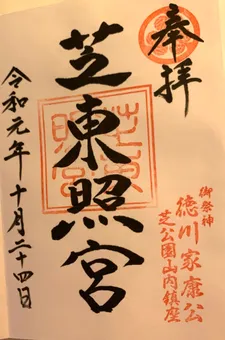 奉拝
御祭神
徳川家康公
芝公園山内鎮座
芝東照宮
芝東照宮
令和元年十月二十四日